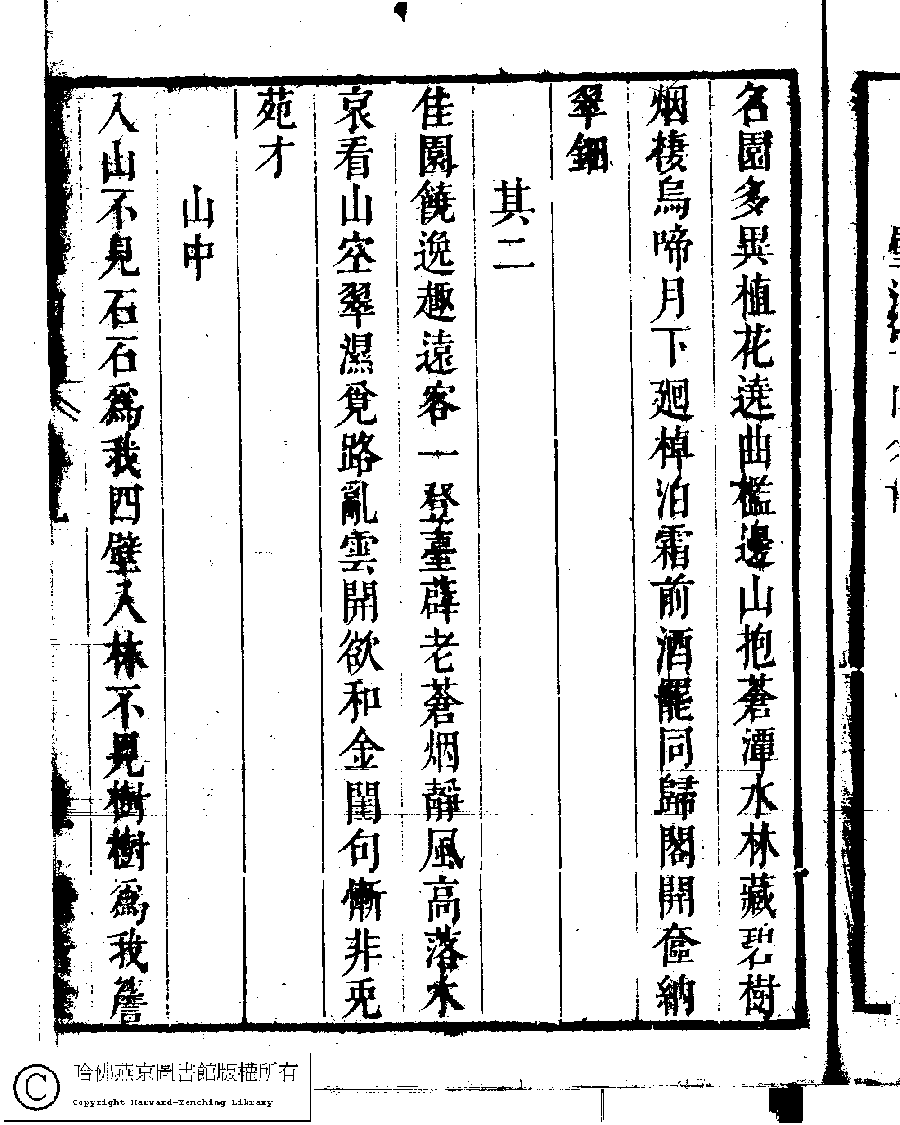 名園多異植花遶曲檻邊山抱蒼潭水林藏碧樹
烟棲烏啼月下廻棹泊霜前酒罷同歸閣開奩納
翠鈿
其二
佳園饒逸趣遠客一登臺薜老蒼烟靜風高落木
哀看山空翠濕覓路亂雲開欲和金閨句慚非兎
苑才
山中
入山不見石石爲我四壁入林不見樹樹爲我簷
哈佛燕京圖書館版權所有
Copyright Harvard-Yenching Library